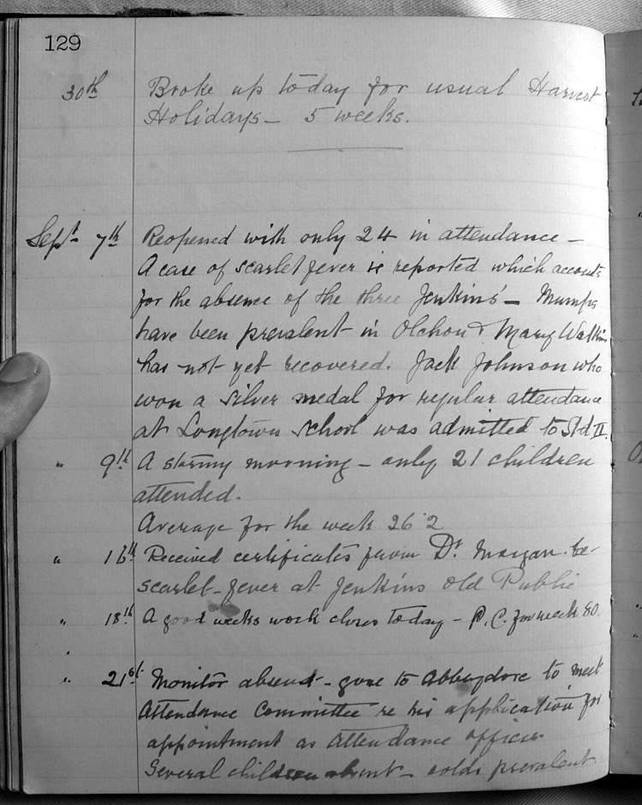 129
30th Broke up today for usual Harvest
Holidays - 5 weeks.
Sept 7th Reopened with only 24 in attendance -
A case of scarlet fever is reported which accounts
for the absence of the three Jenkins' - Mumps
have been prevalent in Olchon & Mary Watkins
has not yet recovered. Jack Johnson who
won a silver medal for regular attendance
at Longtown School was admitted to Std II.
" 9th A stormy morning - only 21 children
attended.
Average for the week 26.2
" 16th Received certificates from Dr. Morgan re
scarlet-fever at Jenkins Old Public
" 18th A good weeks work closes today - P.C. for week 80.
" 21st Monitor absent - gone to Abbeydore to meet
Attendance Committee re his application for
appointment as Attendance officer
Several children absent - colds prevalent